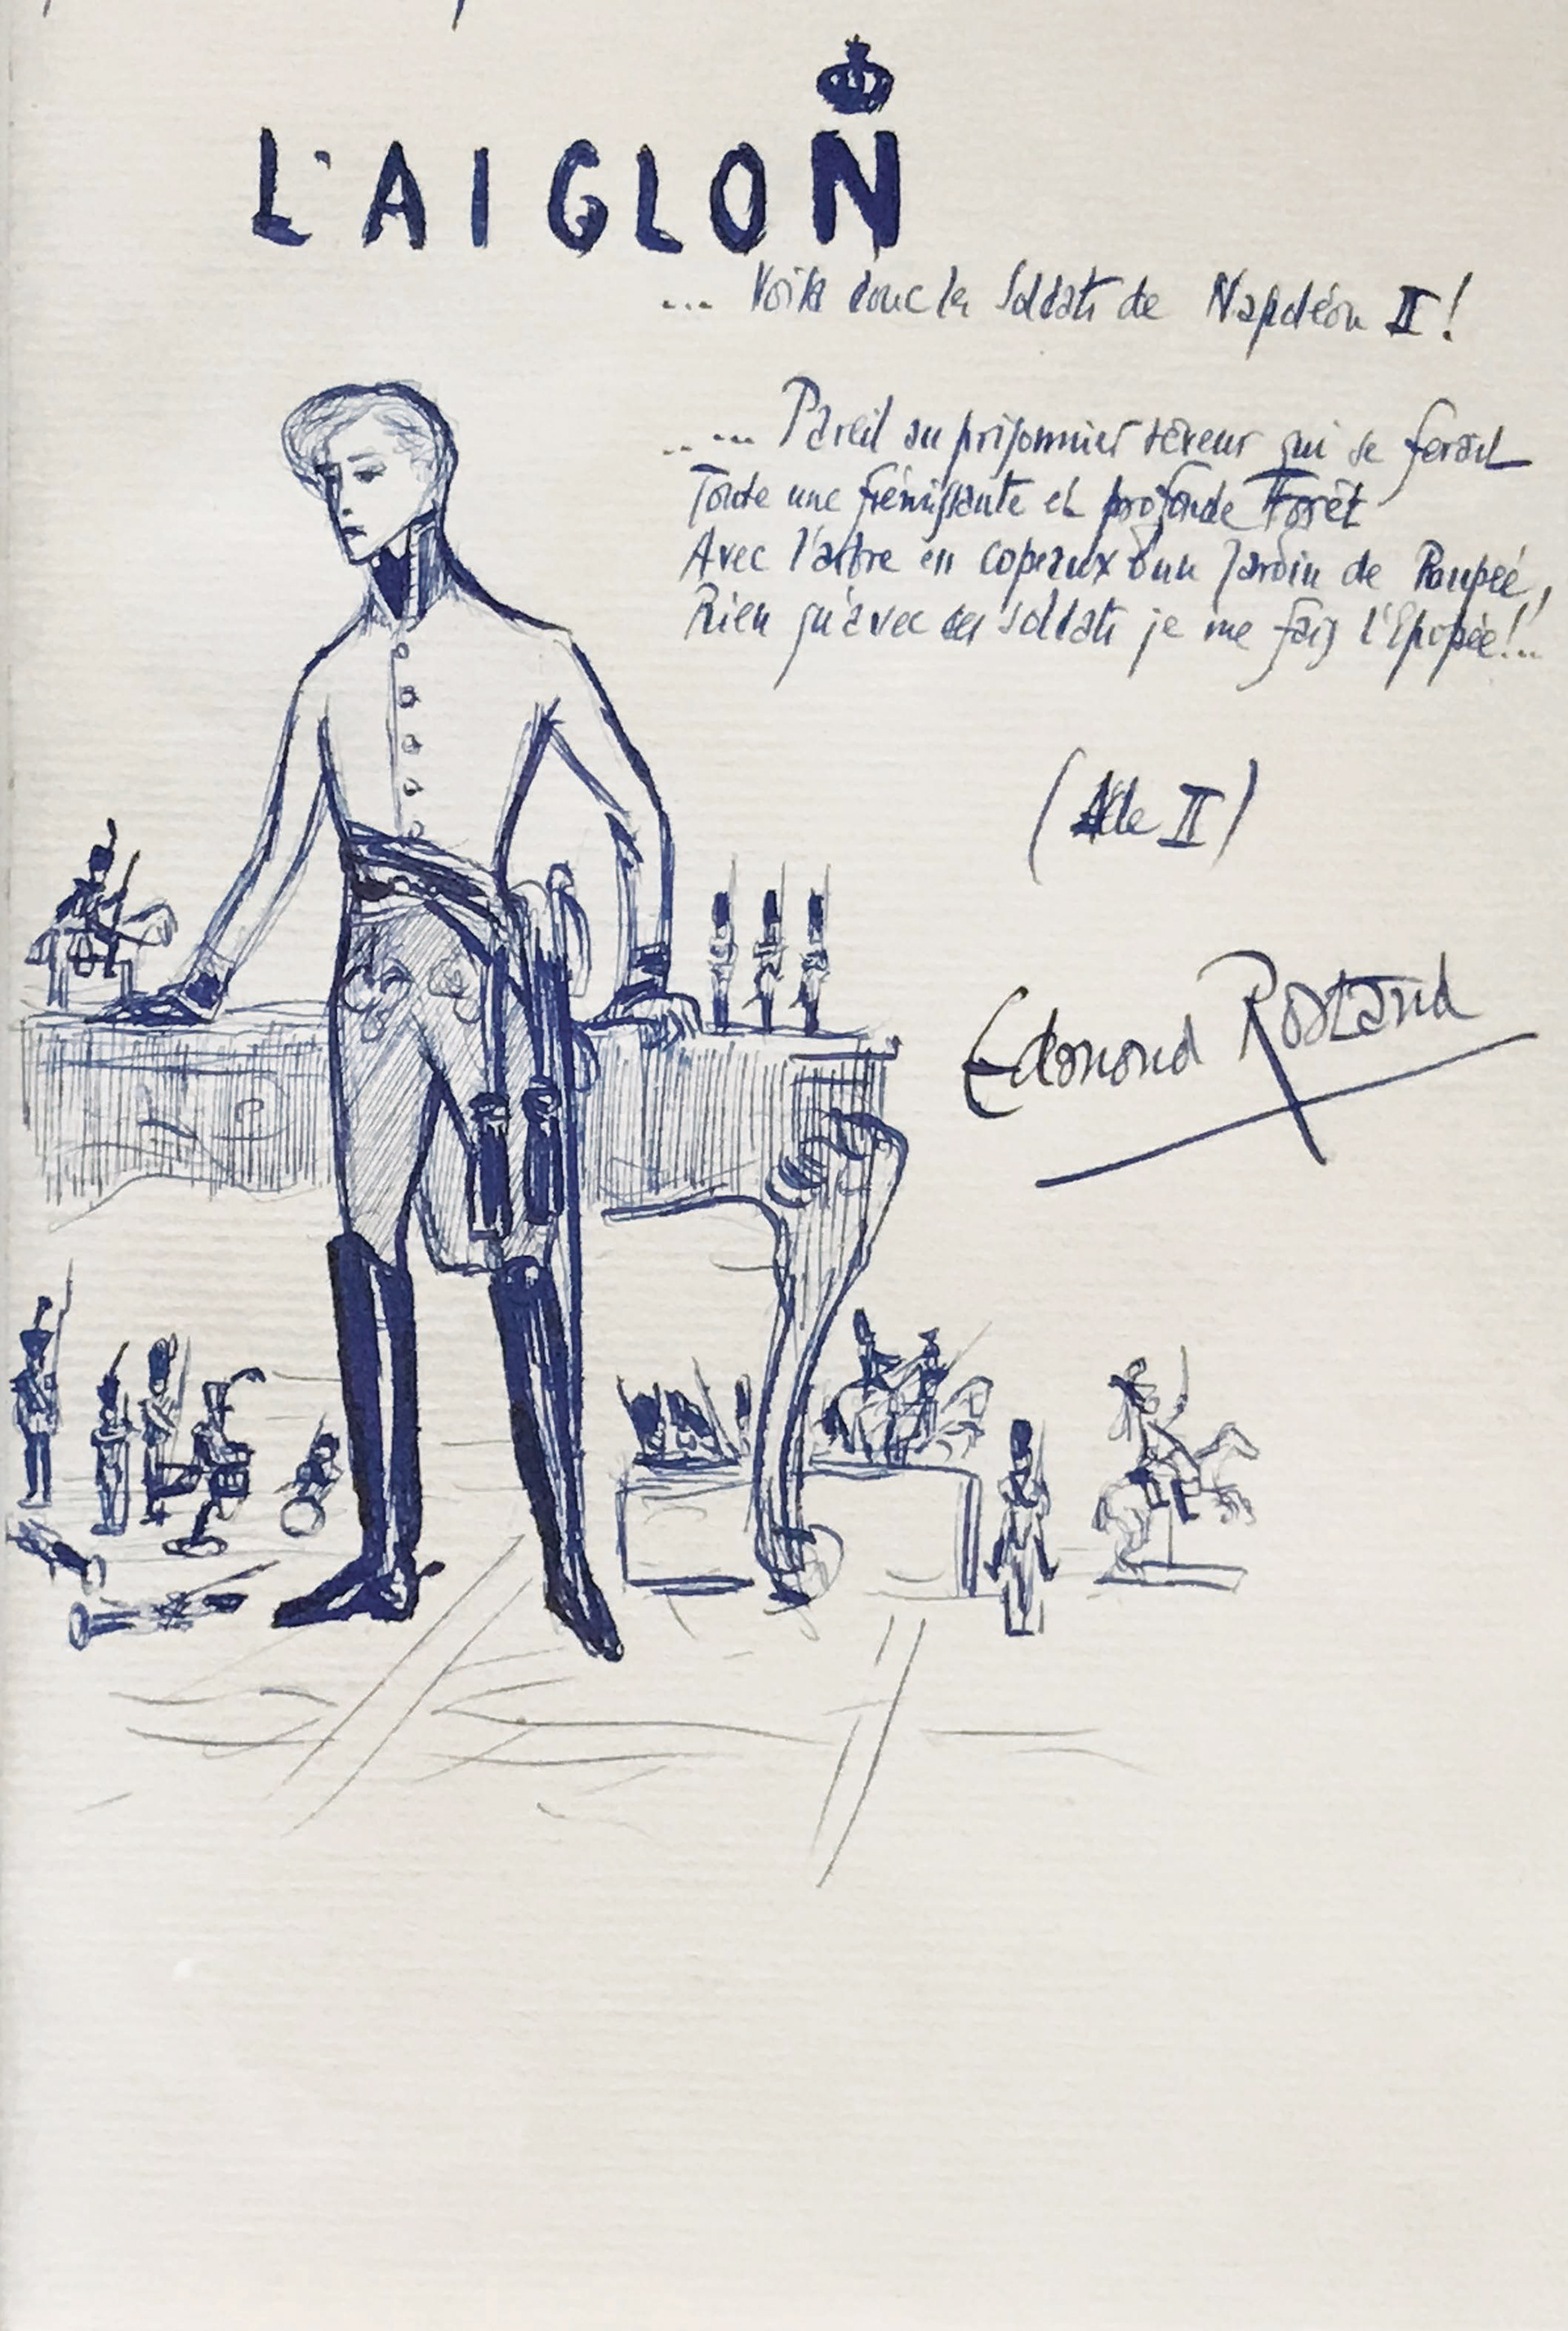 L'AIGLON
... Voilà donc les soldats de Napoléon II !
..... Pareil au prisonnier rêveur qui se ferait
Toute une frémissante et profonde Forêt
Avec l'arbre en copeaux d'un Jardin de Poupée,
Rien qu'avec ces soldats je me fais l'Epopée !...
(Acte II)
Edmond Rostand